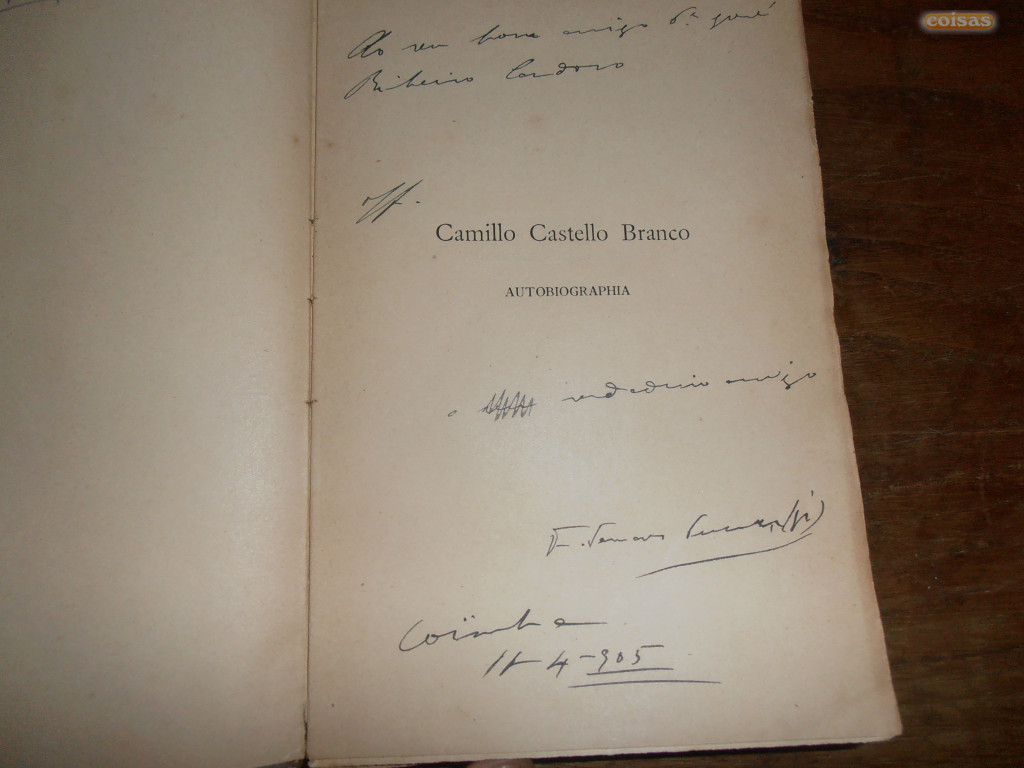 coisas
Ao seu bom amigo Dr. José
Ribeiro Cardoso
off.
Camillo Castello Branco
AUTOBIOGRAPHIA
o verdadeiro amigo
Coimbra
4-905